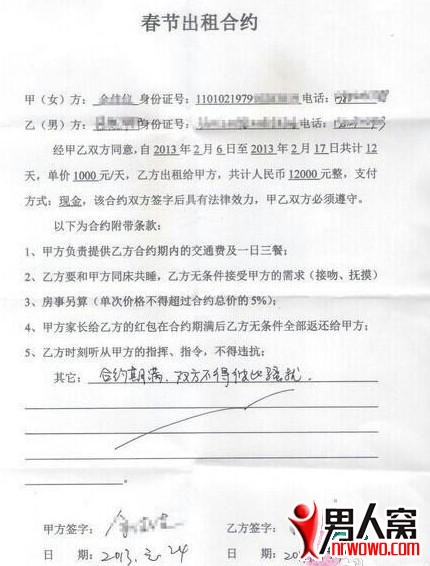 春节出租合约
甲（女）方： 身份证号：1101021979 电话：
乙（男）方： 身份证号： 电话：
经甲乙双方同意，自 2013 年 2 月 6 日至 2013 年 2 月 17 日共计 12
天，单价 1000 元/天，乙方出租给甲方，共计人民币 12000 元整，支付
方式：现金，该合约双方签字后具有法律效力，甲乙双方必须遵守。
以下为合约附带条款：
1、甲方负责提供乙方合约期内的交通费及一日三餐；
2、乙方要和甲方同床共睡，乙方无条件接受甲方的需求（接吻、抚摸）
3、房事另算（单次价格不得超过合约总价的 5%）；
4、甲方家长给乙方的红包在合约期满后乙方无条件全部返还给甲方；
5、乙方时刻听从甲方的指挥、指令，不得违抗；
其它： 合约期满，双方不得彼此骚扰。
。
甲方签字： 乙方签字：
日 期：2013. 元. 24 日 期：20
男人窝
nrwowo.com